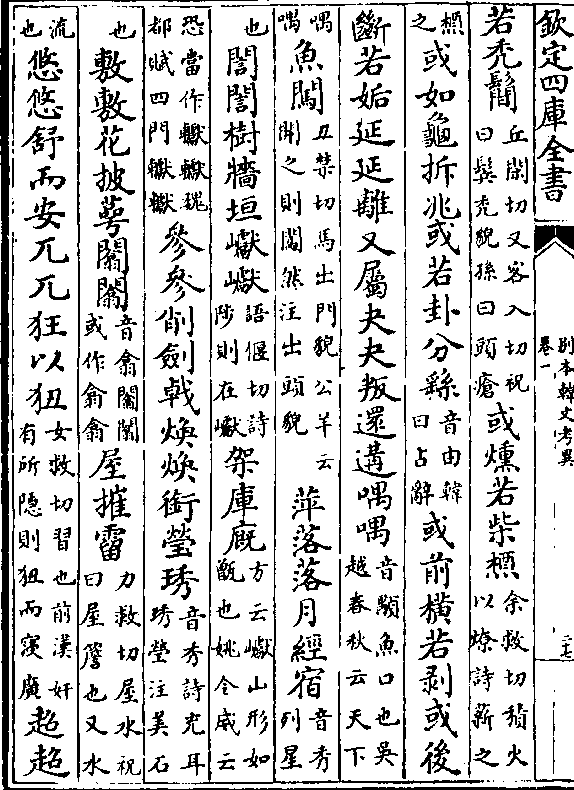 欽定四庫全書
別本韓文考異
卷一
若禿鬜丘閑切又客入切祝曰鬓禿貌孫曰頭瘡或燻若柴槱余救切積火以燎詩薪之
槱之或如龜拆兆或若卦分繇音由韓曰占辭或前橫若剥或後
斷若姤延延離又屬夬夬叛還遘喁喁音顒魚口也吳越春秋云天下
喁喁魚闖丑禁切馬出門貌公羊云開之則闖然注出頭貌萍落落月經宿音秀列星
也誾誾樹牆垣巘巘語偃切詩陟則在巘架庫廐方云巘山形如甑也姚令威云
恐當作轞轞魏都賦四門轞轞參參削劍戟煥煥銜瑩琇音秀詩充耳琇瑩注美石
也敷敷花披萼闟闟音翕闟闟或作翕翕屋摧霤力救切屋水祝曰屋簷也又水
流也悠悠舒而安兀兀狂以狃女救切習也前漢奸有所隠則狃而寖廣超超